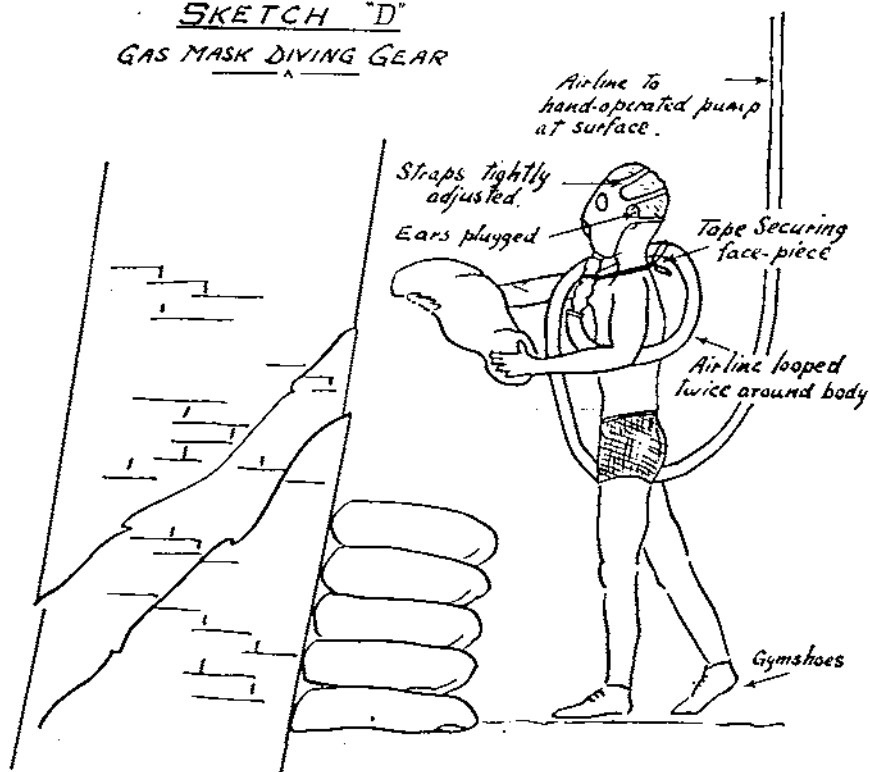 SKETCH "D"
GAS MASK DIVING GEAR
Airline to
hand-operated pump
at surface.
Straps tightly
adjusted.
Ears plugged
Tape Securing
face-piece
Airline looped
twice around body
Gymshoes